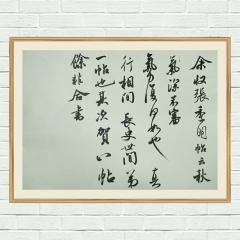 余收張季明帖云秋
氣深不審
氣力復何如也真
行相間長史世間弟
一帖也其次賀八帖
餘非合書